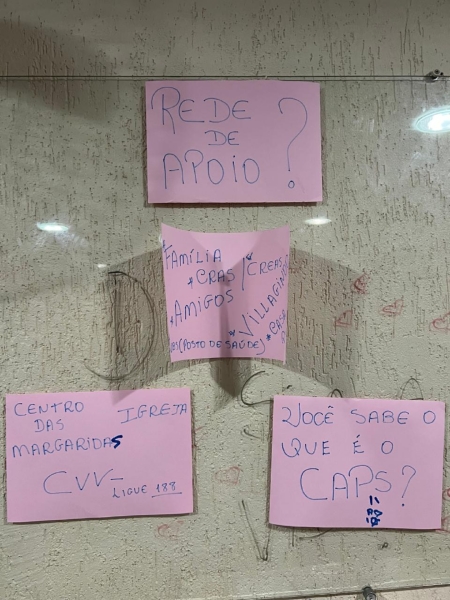 REDE
DE
APOIO ?
*FAMÍLIA
*CRAS / *CREAS
*AMIGOS
*VILLAGINO
(POSTO DE SAÚDE)
CENTRO
DAS
MARGARIDAS
IGREJA
CVV-
LIGUE 188
VOCÊ SABE O
QUE É O
CAPS?